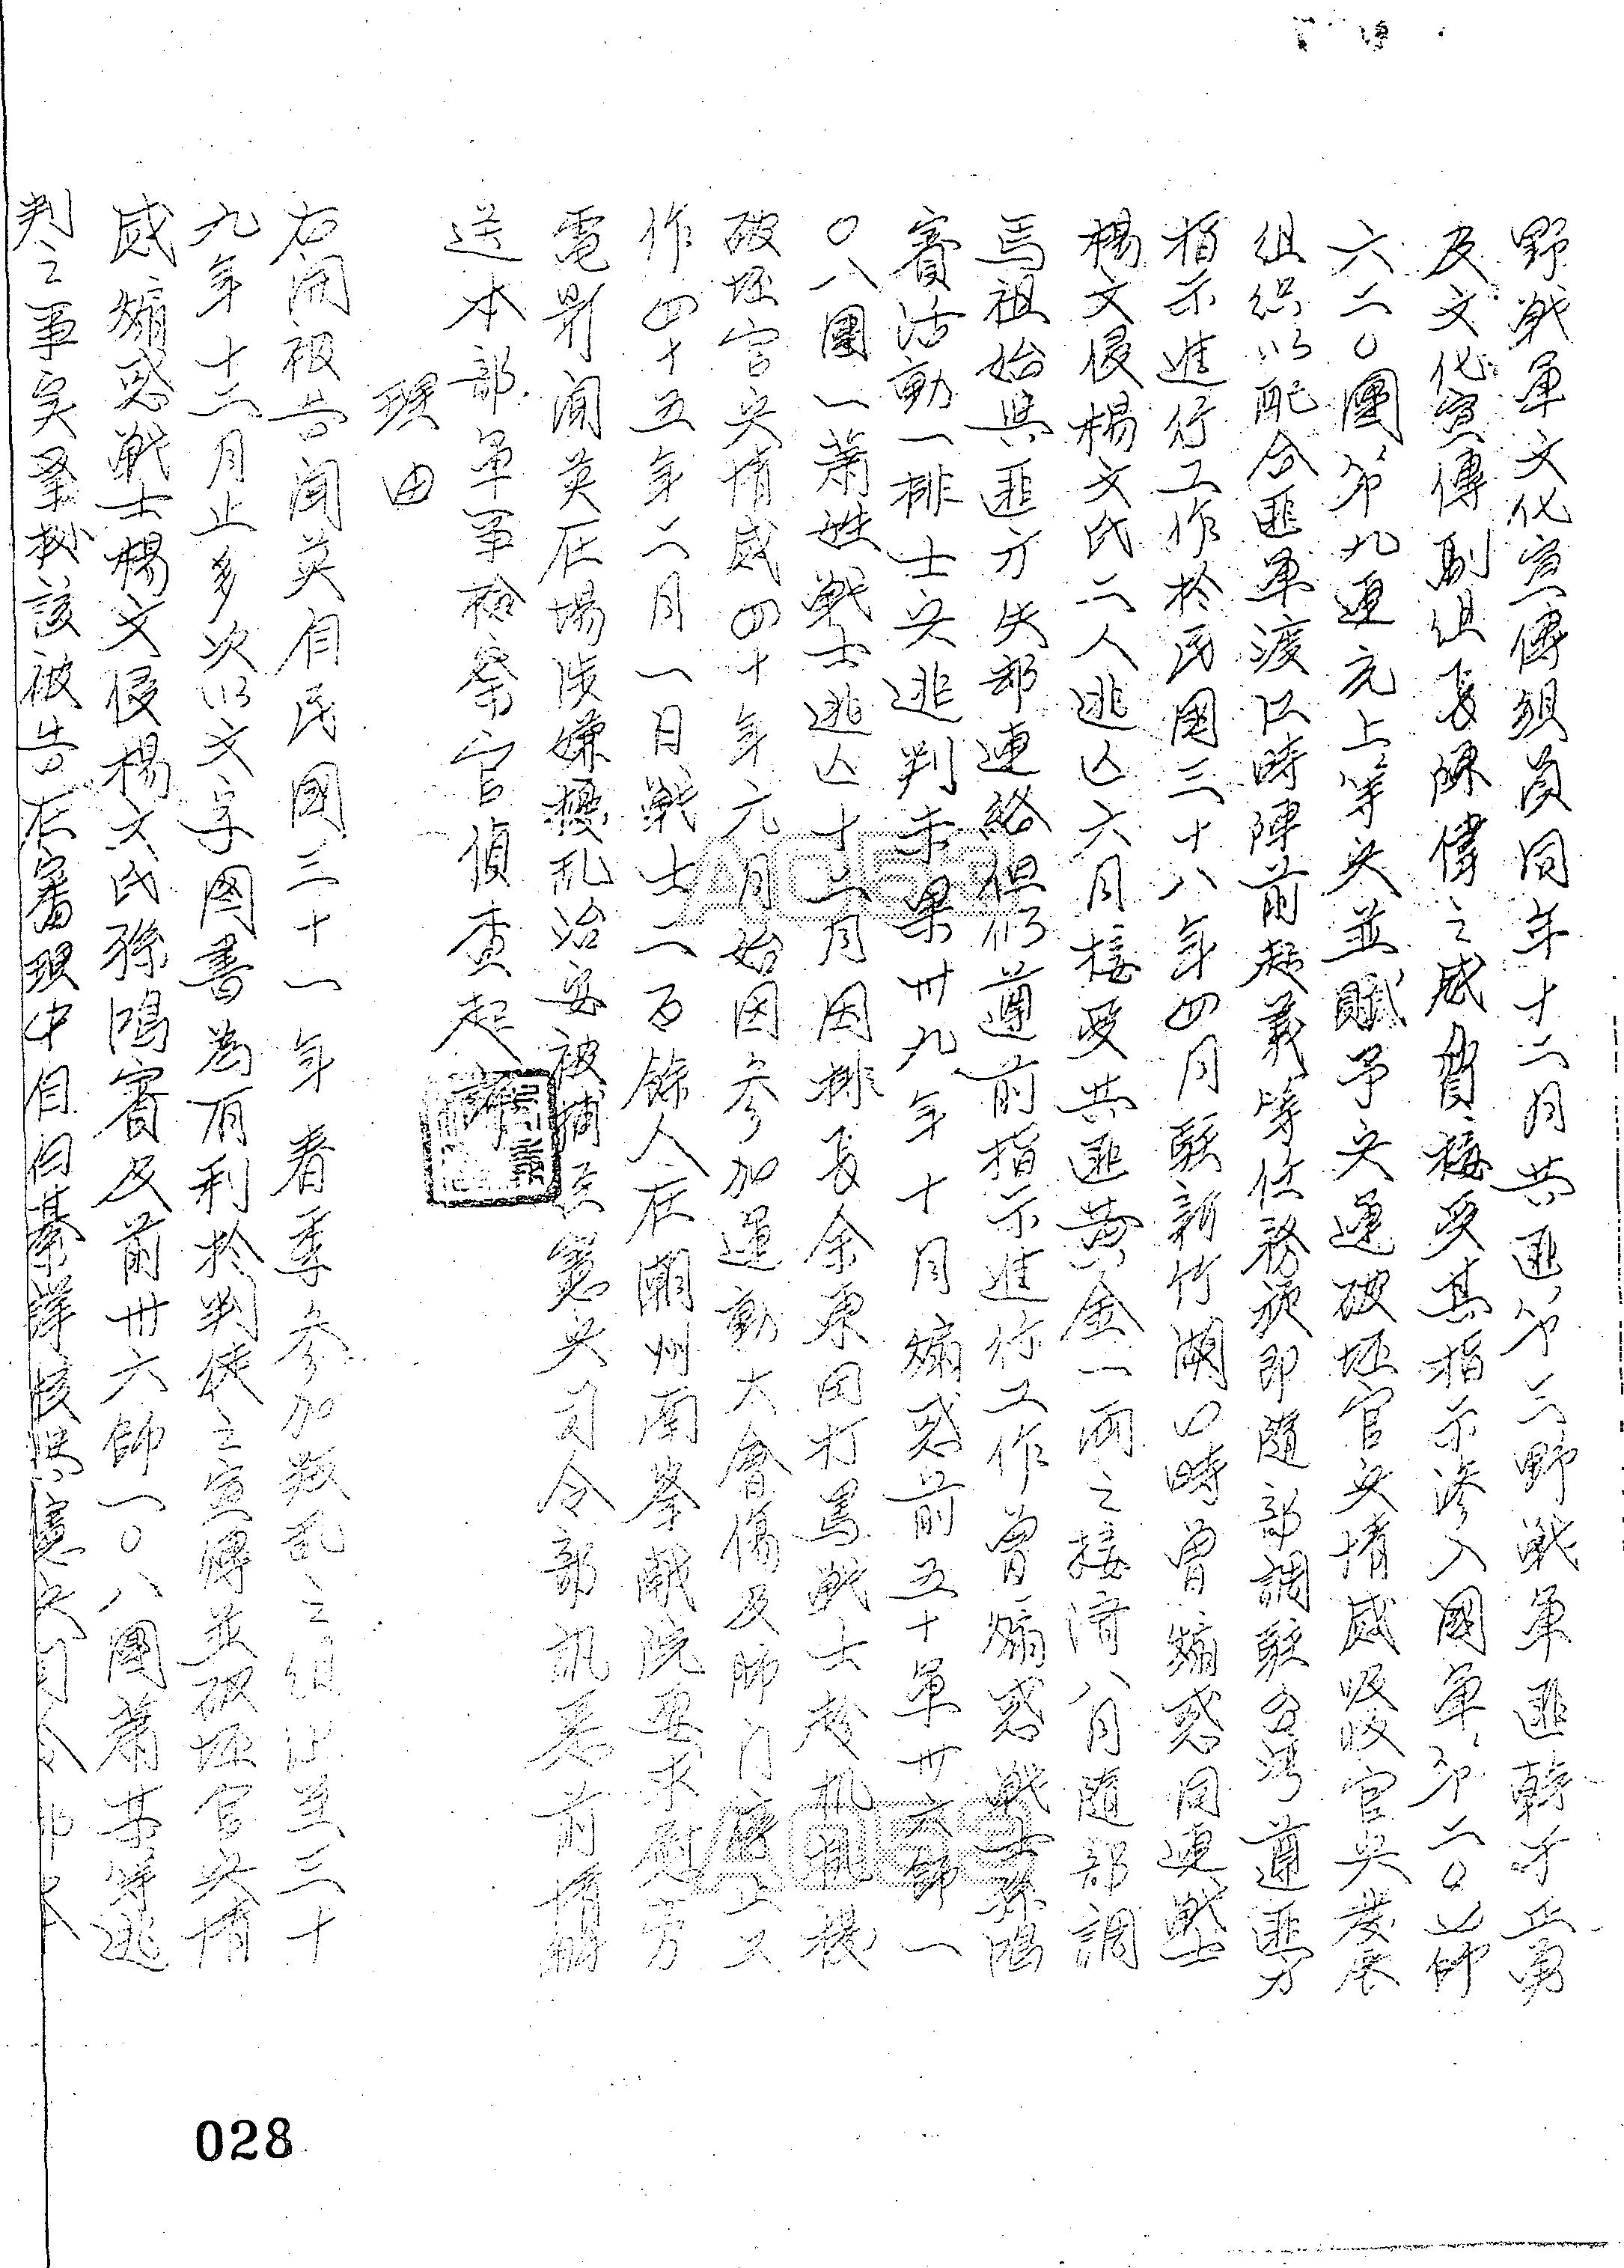 野戰軍文化宣傳組員同年十二月共匪第三野戰軍匪幹才正勇
及文化宣傳副組長陳偉之威脅接受其指示滲入國軍第二〇七師
六二〇團第九連充上等兵並賦予兵運破坯官兵情感吸收官兵發展
組織以配合匪軍渡江時陣前起義等任務旋即隨部調駐台灣遵匪方
指示進行工作於民國三十八年四月駐新竹湖口時曾煽惑同連戰士
楊文侵楊文氏二人逃亡六月接受共匪黃金一兩之接濟八月隨部調
馬祖始與匪方失却連絡但仍遵前指示進行工作曾煽惑戰士孫鴻
賓活動一排士兵逃判未果卅九年十月煽惑前五十軍卅六師一
〇八團一蕭姓戰士逃亡十二月因排長余東田打罵戰士趁机挑撥
破坯官兵情感四十年元月始因參加運動大會傷及肺门 止又
作四十五年二月一日戰士二百餘人在潮州南峯戲院要求慰勞
電影聞英在場涉嫌擾乱治安被捕送憲兵司令部訊悉前情解
送本部軍事檢察官偵查起訴
理由
右開被告聞英自民國三十一年春季參加叛乱之組 至三十
九年十二月止多次以文字图書為有利於判徒之宣傳並破坯官兵情
感煽惑戰士楊文侵楊文氏孫鴻賓及前卅六師一〇八團蕭某等逃
判之事实業據該被告在審理中自白綦詳核與憲兵司令部
028
AC53
AC53